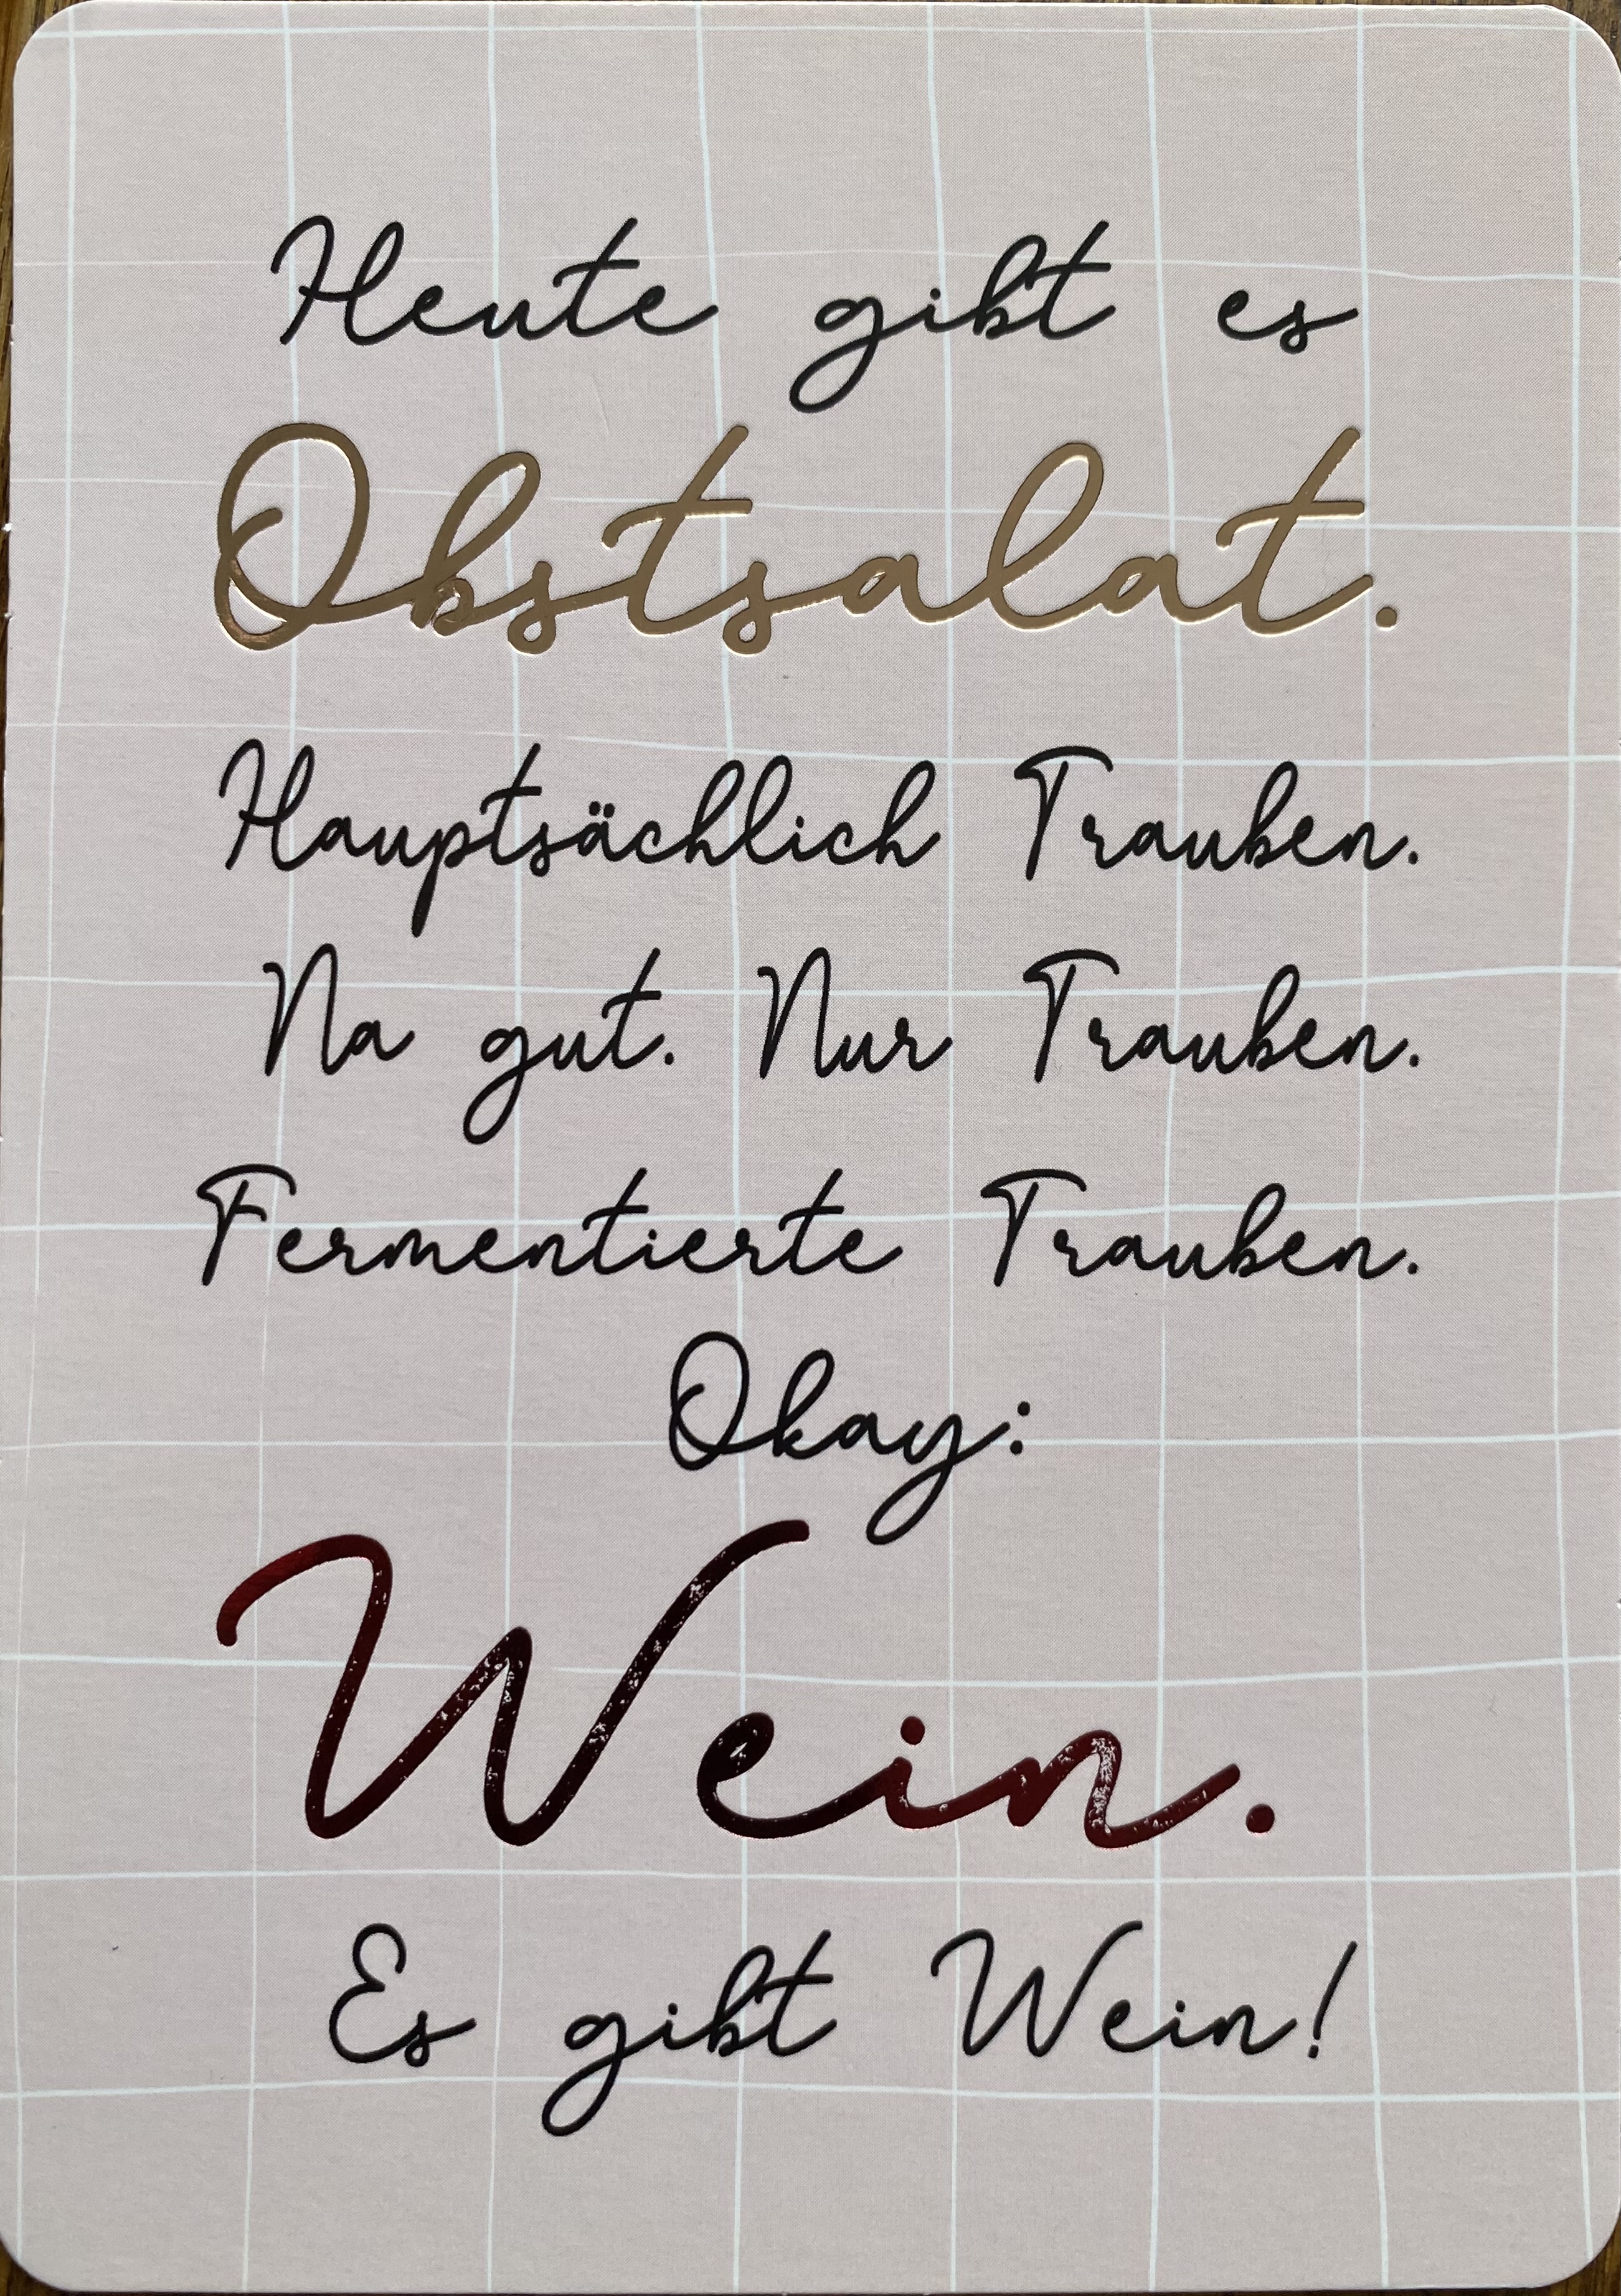 Heute gibt es
Obstsalat.
Hauptsächlich Trauben.
Na gut. Nur Trauben.
Fermentierte Trauben.
Okay:
Wein.
Es gibt Wein!